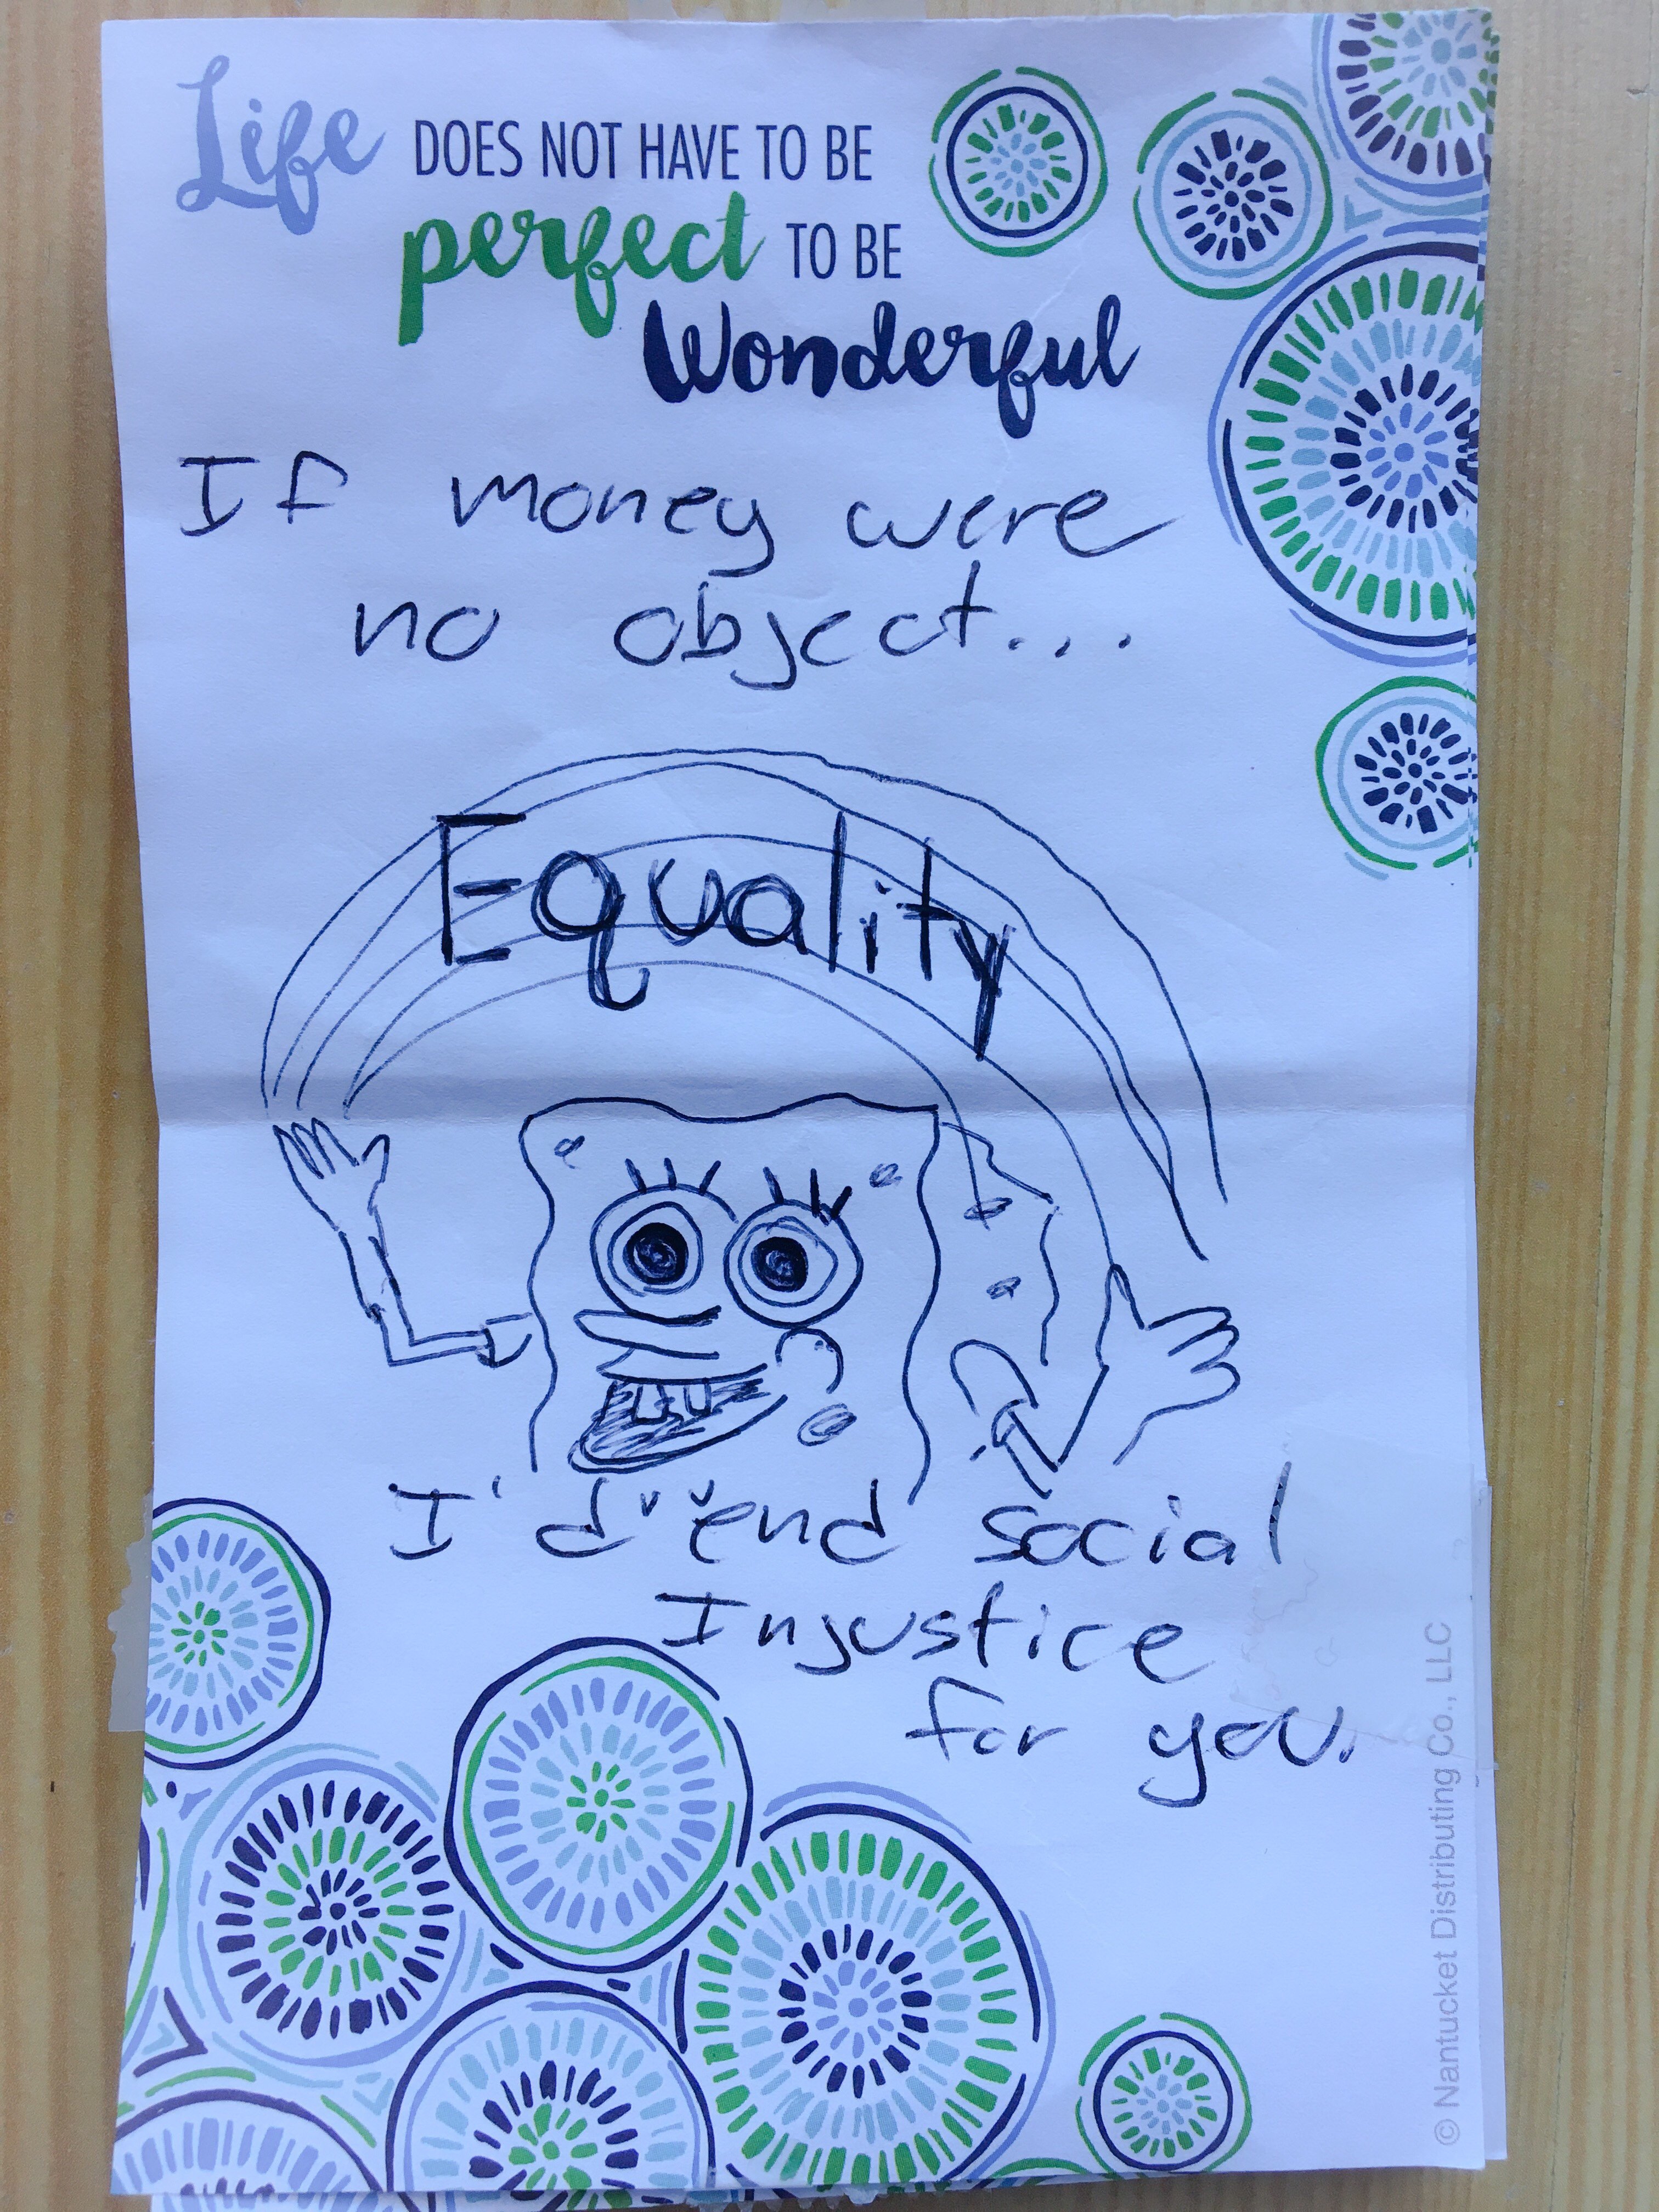 Life DOES NOT HAVE TO BE
perfect TO BE
Wonderful
If money were
no object...
Equality
I'd end social
Injustice
for you.
© Nantucket Distributing Co., LLC